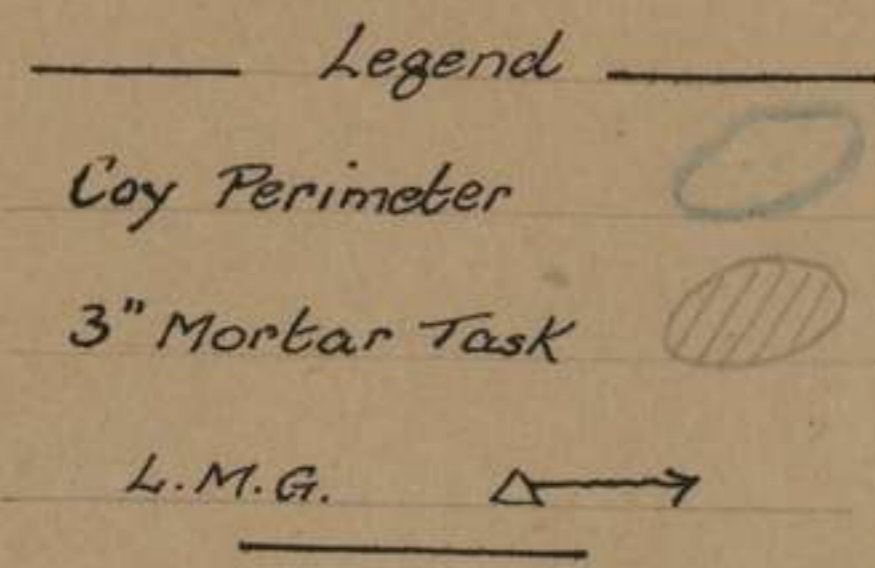 Legend
Coy Perimeter
3" Mortar Task
L.M.G.